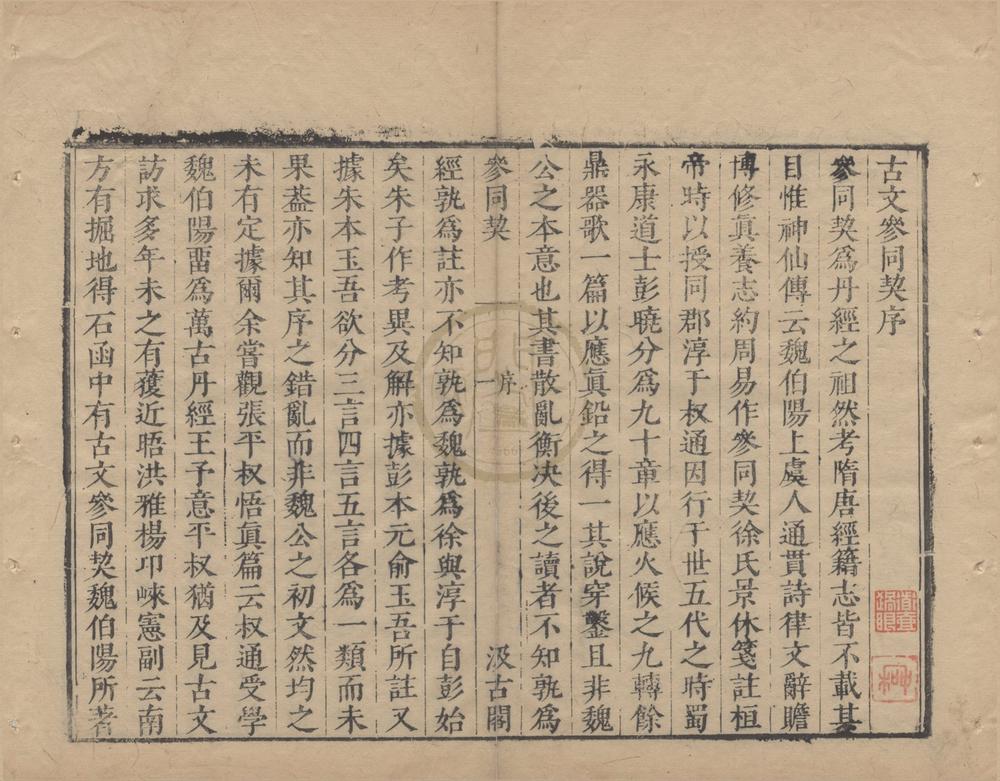 古文參同契序
參同契爲丹經之祖然考隋唐經籍志皆不載其
目惟神仙傳云魏伯陽上虞人通貫詩律文辭贍
博修眞養志約周易作參同契徐氏景休箋註桓
帝時以授同郡淳于叔通因行于世五代之時蜀
永康道士彭曉分爲九十章以應火候之九轉餘
鼎器歌一篇以應眞鉛之得一其說穿鑿且非魏
公之本意也其書散亂衡决後之讀者不知孰爲
參同契 序 一 汲古閣
經孰爲註亦不知孰爲魏孰爲徐與淳于自彭始
矣朱子作考異及解亦據彭本元俞玉吾所註又
據朱本玉吾欲分三言四言五言各爲一類而未
果葢亦知其序之錯亂而非魏公之初文然均之
未有定據爾余嘗觀張平叔悟眞篇云叔通受學
魏伯陽畱爲萬古丹經王予意平叔猶及見古文
訪求多年未之有獲近晤洪雅楊卭崍憲副云南
方有掘地得石函中有古文參同契魏伯陽所著